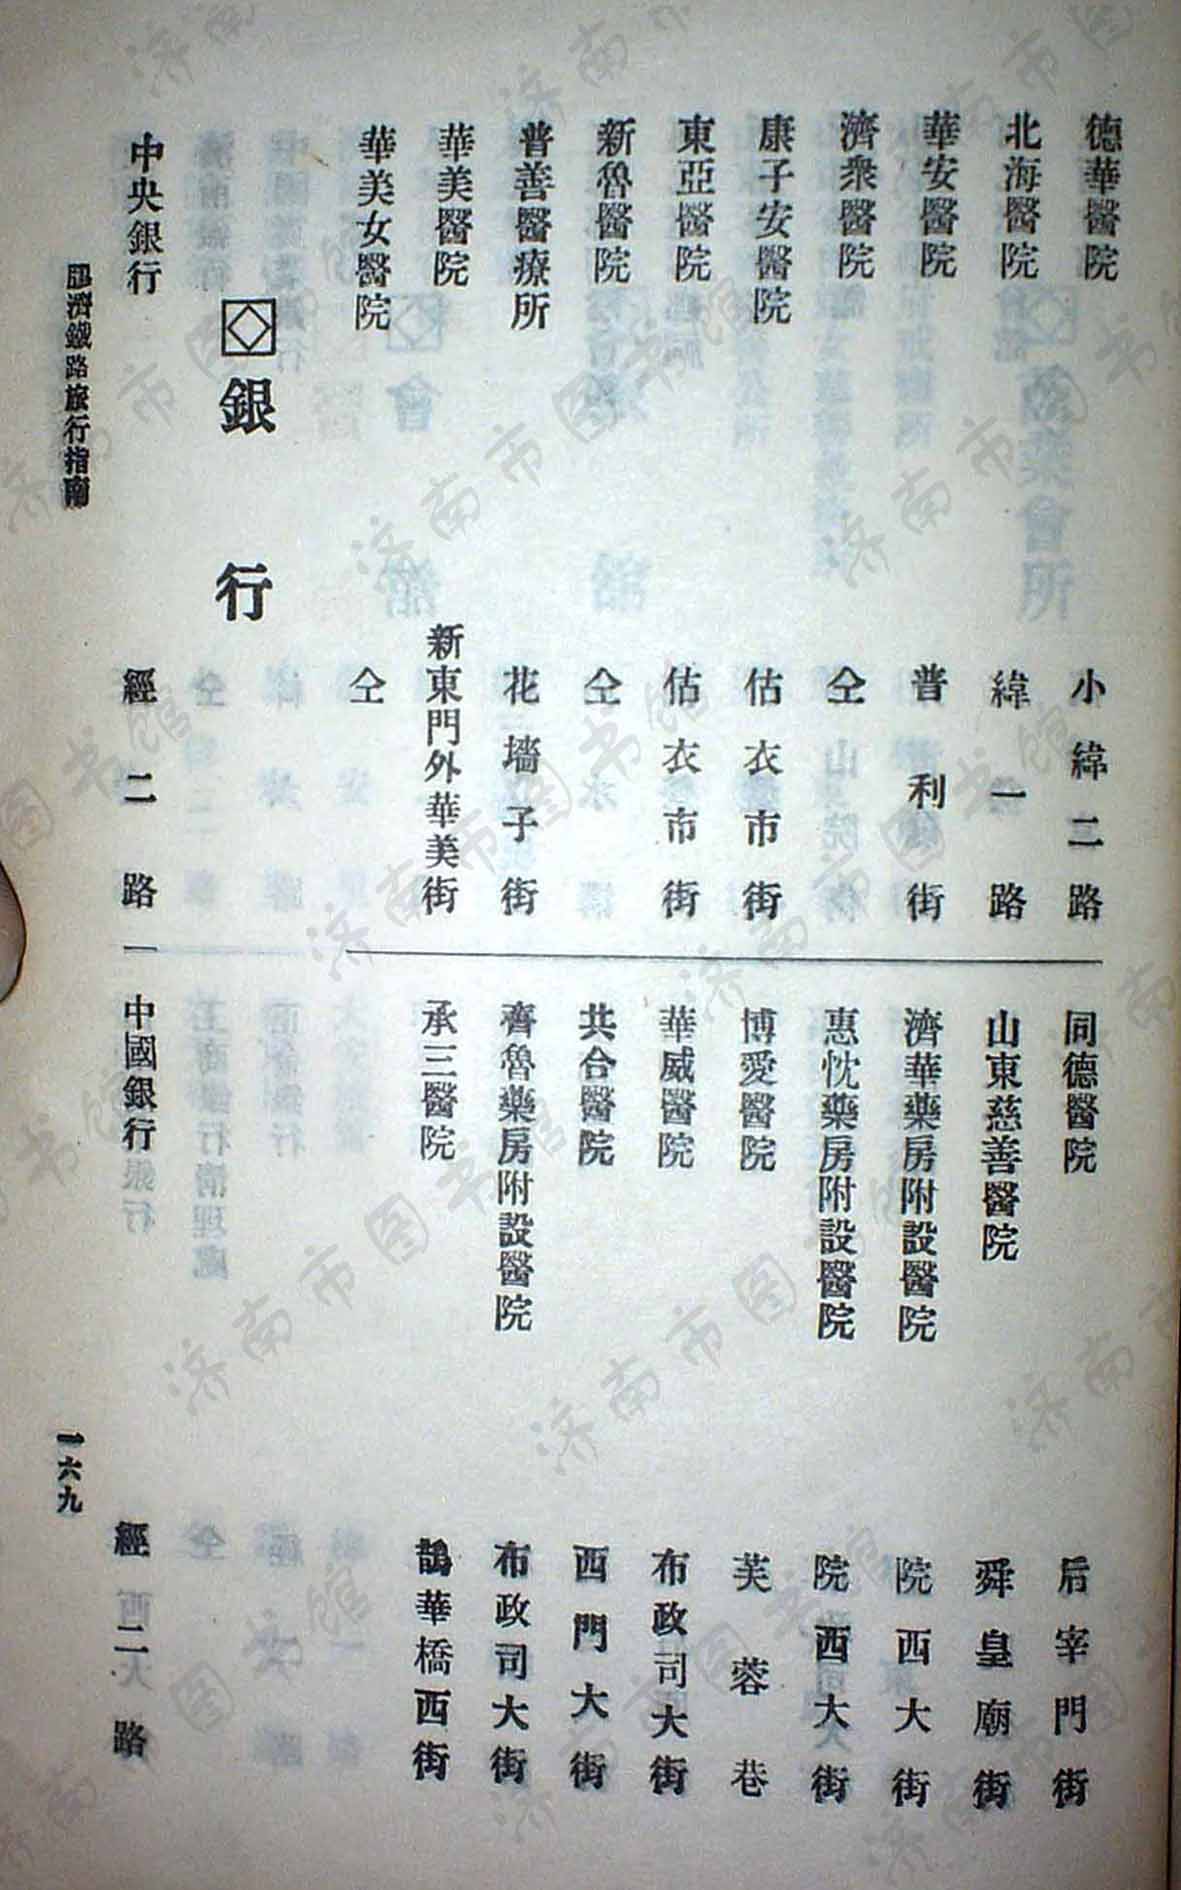 德華醫院　小緯二路
北海醫院　緯一路
華安醫院　普利街
濟衆醫院　仝
康子安醫院　估衣市街
東亞醫院　估衣市街
新魯醫院　仝
普善醫療所　花墻子街
華美醫院　新東門外華美街
華美女醫院　仝
同德醫院　后宰門街
山東慈善醫院　舜皇廟街
濟華藥房附設醫院　院西大街
惠忱藥房附設醫院　院西大街
博愛醫院　芙蓉巷
華威醫院　布政司大街
共合醫院　西門大街
齊魯藥房附設醫院　布政司大街
承三醫院　鵲華橋西街
銀行
中央銀行　經二路
中國銀行　經二路
膠濟鐵路旅行指南
一六九
济南市图书馆